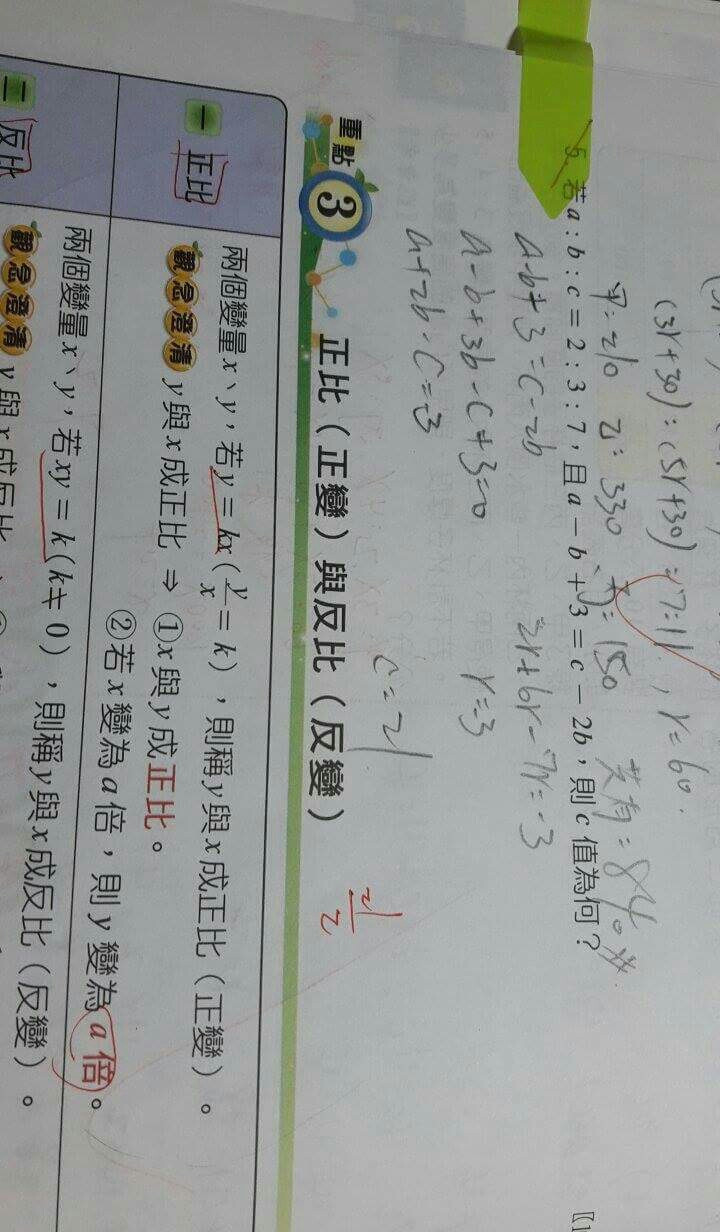 (3r+30):(5r+30)=7:11, r=60.
甲=210 乙:330 丙=150 共有=840
5. 若a:b:c=2:3:7,且a-b+3=c-2b,則c值為何?
a-b+3=c-2b 2r+6r-7r=-3
a-b+3b-c+3=0 r=3
a+2b-c=-3 c=21
21/2
重點 3 正比(正變)與反比(反變)
一 正比 兩個變量x、y,若y=kx(y/x=k),則稱y與x成正比(正變)。
觀念澄清 y與x成正比⇒①x與y成正比。
②若x變為a倍,則y變為a倍。
二 反比 兩個變量x、y,若xy=k(k≠0),則稱y與x成反比(反變)。
觀念澄清 y與x成反比